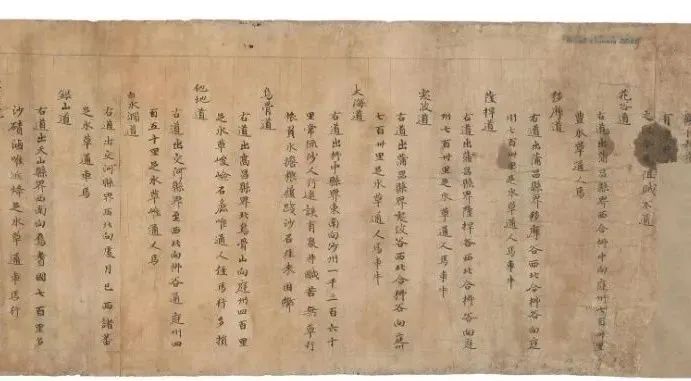 花谷道
右道出蒲昌縣界西合柳中向庭州七百卅里
豐水草通人馬
移摩道
右道出蒲昌縣界移摩谷西北合柳谷向庭
州七百卅里足水草通人馬車牛
薩捍道
右道出蒲昌縣界薩捍谷西北合柳谷向庭
州七百卅里足水草通人馬車牛
突波道
右道出蒲昌縣界突波谷西北合柳谷向庭州
七百卅里足水草通人馬車牛
大海道
右道出柳中縣界東南向沙州一千三百六十
里常流沙人行迷誤有泉井鹹苦無草行
旅負水擔糧履踐沙石往來困弊
烏骨道
右道出高昌縣界北烏骨山向庭州四百里
足水草峻嶮石麤唯通人徑馬行多損
他地道
右道出交河縣界至西北向柳谷通庭州四
百五十里足水草唯通人馬
白水澗道
右道出交河縣界西北向處月已西諸蕃
足水草通車馬
銀山道
右道出天山縣界西南向焉耆國七百里多
沙磧滷唯近烽足水草通車馬行